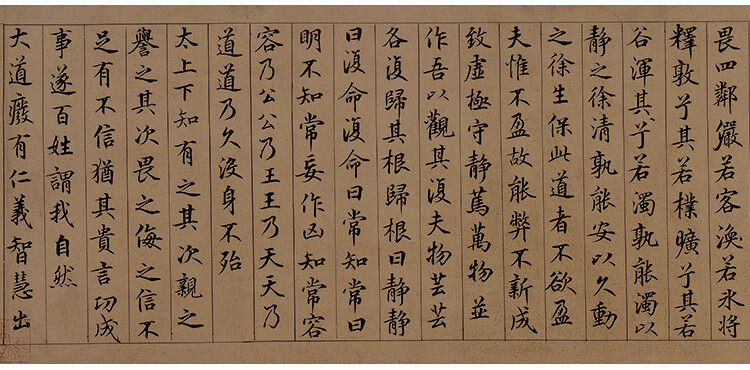 畏四鄰儼若客渙若冰將
釋敦兮其若樸曠兮其若
谷渾其兮若濁孰能濁以
靜之徐清孰能安以久動
之徐生保此道者不欲盈
夫惟不盈故能弊不新成
致虛極守靜篤萬物並
作吾以觀其復夫物芸芸
各復歸其根歸根曰靜靜
曰復命復命曰常知常曰
明不知常妄作凶知常容
容乃公公乃王王乃天天乃
道道乃久沒身不殆
太上下知有之其次親之
譽之其次畏之侮之信不
足有不信猶其貴言功成
事遂百姓謂我自然
大道廢有仁義智慧出